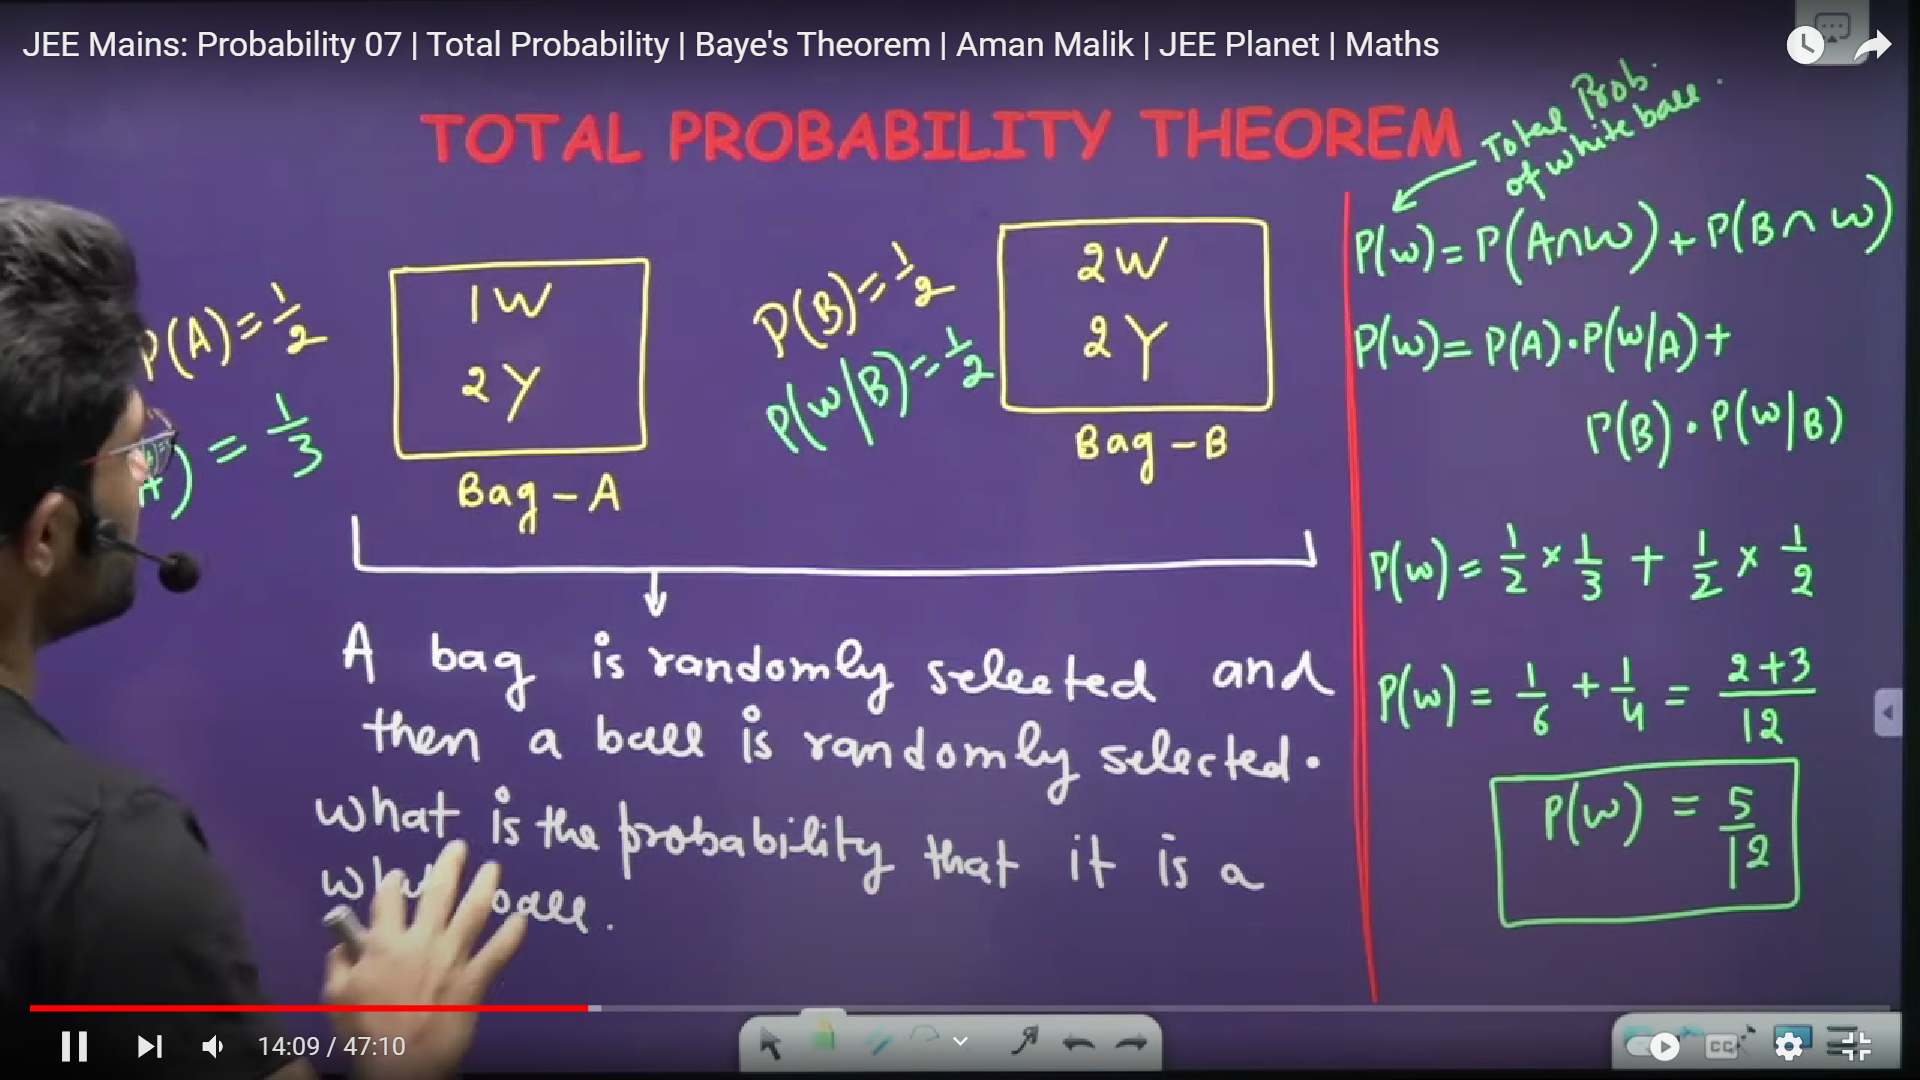 JEE Mains: Probability 07 | Total Probability | Baye's Theorem | Aman Malik | JEE Planet | Maths
TOTAL PROBABILITY THEOREM
P(A) = 1/2
) = 1/3
1W
2Y
Bag - A
P(B) = 1/2
P(W/B) = 1/2
2W
2Y
Bag - B
A bag is randomly selected and
then a ball is randomly selected.
What is the probability that it is a
ball.
Total Prob.
of white ball
P(W) = P(A∩W) + P(B∩W)
P(W) = P(A)·P(W/A) +
P(B)·P(W/B)
P(W) = 1/2 × 1/3 + 1/2 × 1/2
P(W) = 1/6 + 1/4 = 2+3/12
P(W) = 5/12
14:09 / 47:10
CC